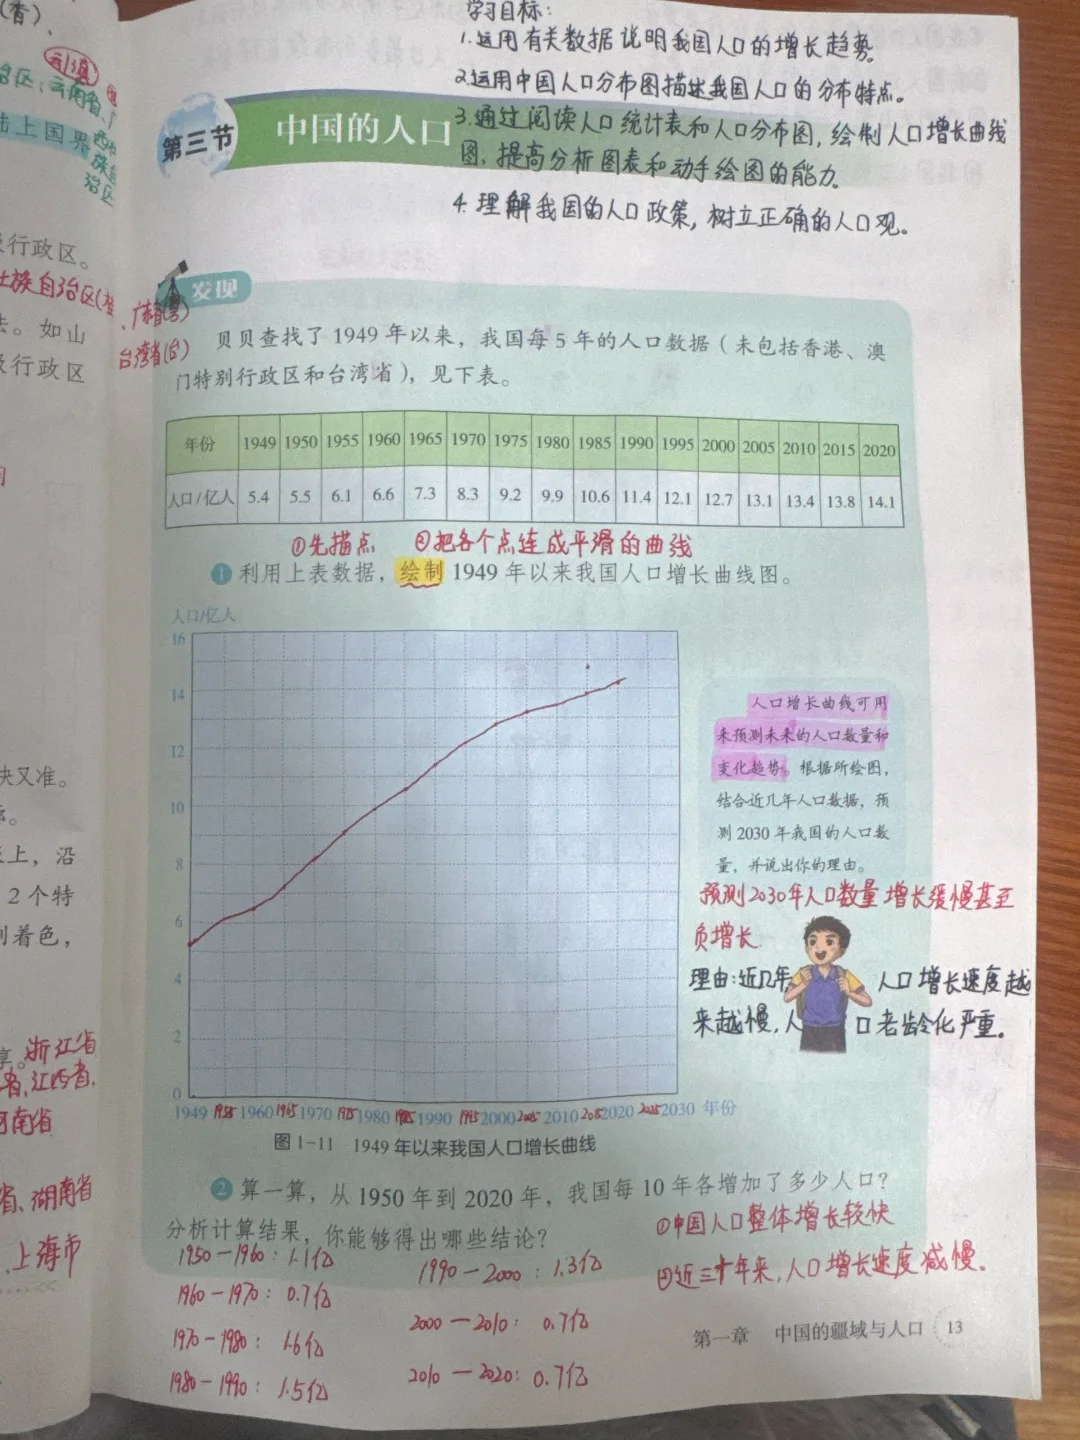 (香)、
学习目标:
1.运用有关数据说明我国人口的增长趋势。
2.运用中国人口分布图描述我国人口的分布特点。
3.通过阅读人口统计表和人口分布图,绘制人口增长曲线
图,提高分析图表和动手绘图的能力。
4.理解我国的人口政策,树立正确的人口观。
第三节 中国的人口
云南省、
陆上国界
治区
行政区。
壮族自治区(桂
、广东省(粤)
台湾省(台)
法。如山
级行政区
发现
贝贝查找了1949年以来,我国每5年的人口数据(未包括香港、澳
门特别行政区和台湾省),见下表。
年份 1949 1950 1955 1960 1965 1970 1975 1980 1985 1990 1995 2000 2005 2010 2015 2020
人口/亿人 5.4 5.5 6.1 6.6 7.3 8.3 9.2 9.9 10.6 11.4 12.1 12.7 13.1 13.4 13.8 14.1
①先描点 ②把各个点连成平滑的曲线
1 利用上表数据,绘制1949年以来我国人口增长曲线图。
人口/亿人
16
14
12
10
8
6
4
2
0
1949 1955 1960 1965 1970 1975 1980 1985 1990 1995 2000 2005 2010 2015 2020 2025 2030 年份
图1-11 1949年以来我国人口增长曲线
人口增长曲线可用
来预测未来的人口数量和
变化趋势。根据所绘图,
结合近几年人口数据,预
测2030年我国的人口数
量,并说出你的理由。
预测2030年人口数量增长缓慢甚至
负增长
理由:近几年 人口增长速度越
来越慢,人 口老龄化严重。
快又准。
上,沿
2个特
别着色,
浙江省
省、江西省、
河南省
省、湖南省
、上海市
2 算一算,从1950年到2020年,我国每10年各增加了多少人口?
分析计算结果,你能够得出哪些结论?
①中国人口整体增长较快
②近三十年来,人口增长速度减慢。
1950-1960:1.1亿
1960-1970:0.7亿
1970-1980:1.6亿
1980-1990:1.5亿
1990-2000:1.3亿
2000-2010:0.7亿
2010-2020:0.7亿
第一章 中国的疆域与人口 13